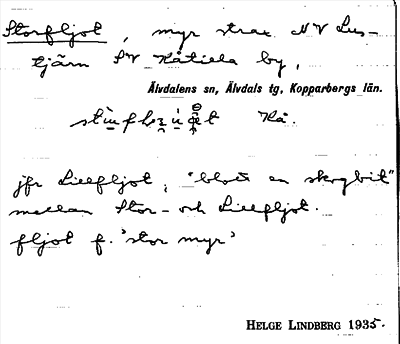 Storfljot, myr strax NV Lus-
tjärn SV Kåtilla by,
Älvdalens sn, Älvdals tg, Kopparbergs län.
Kå.
jfr Lillfljot, "blott en skogbit"
mellan Stor- och Lillfljot.
fljot f. 'stor myr'
HELGE LINDBERG 1935.